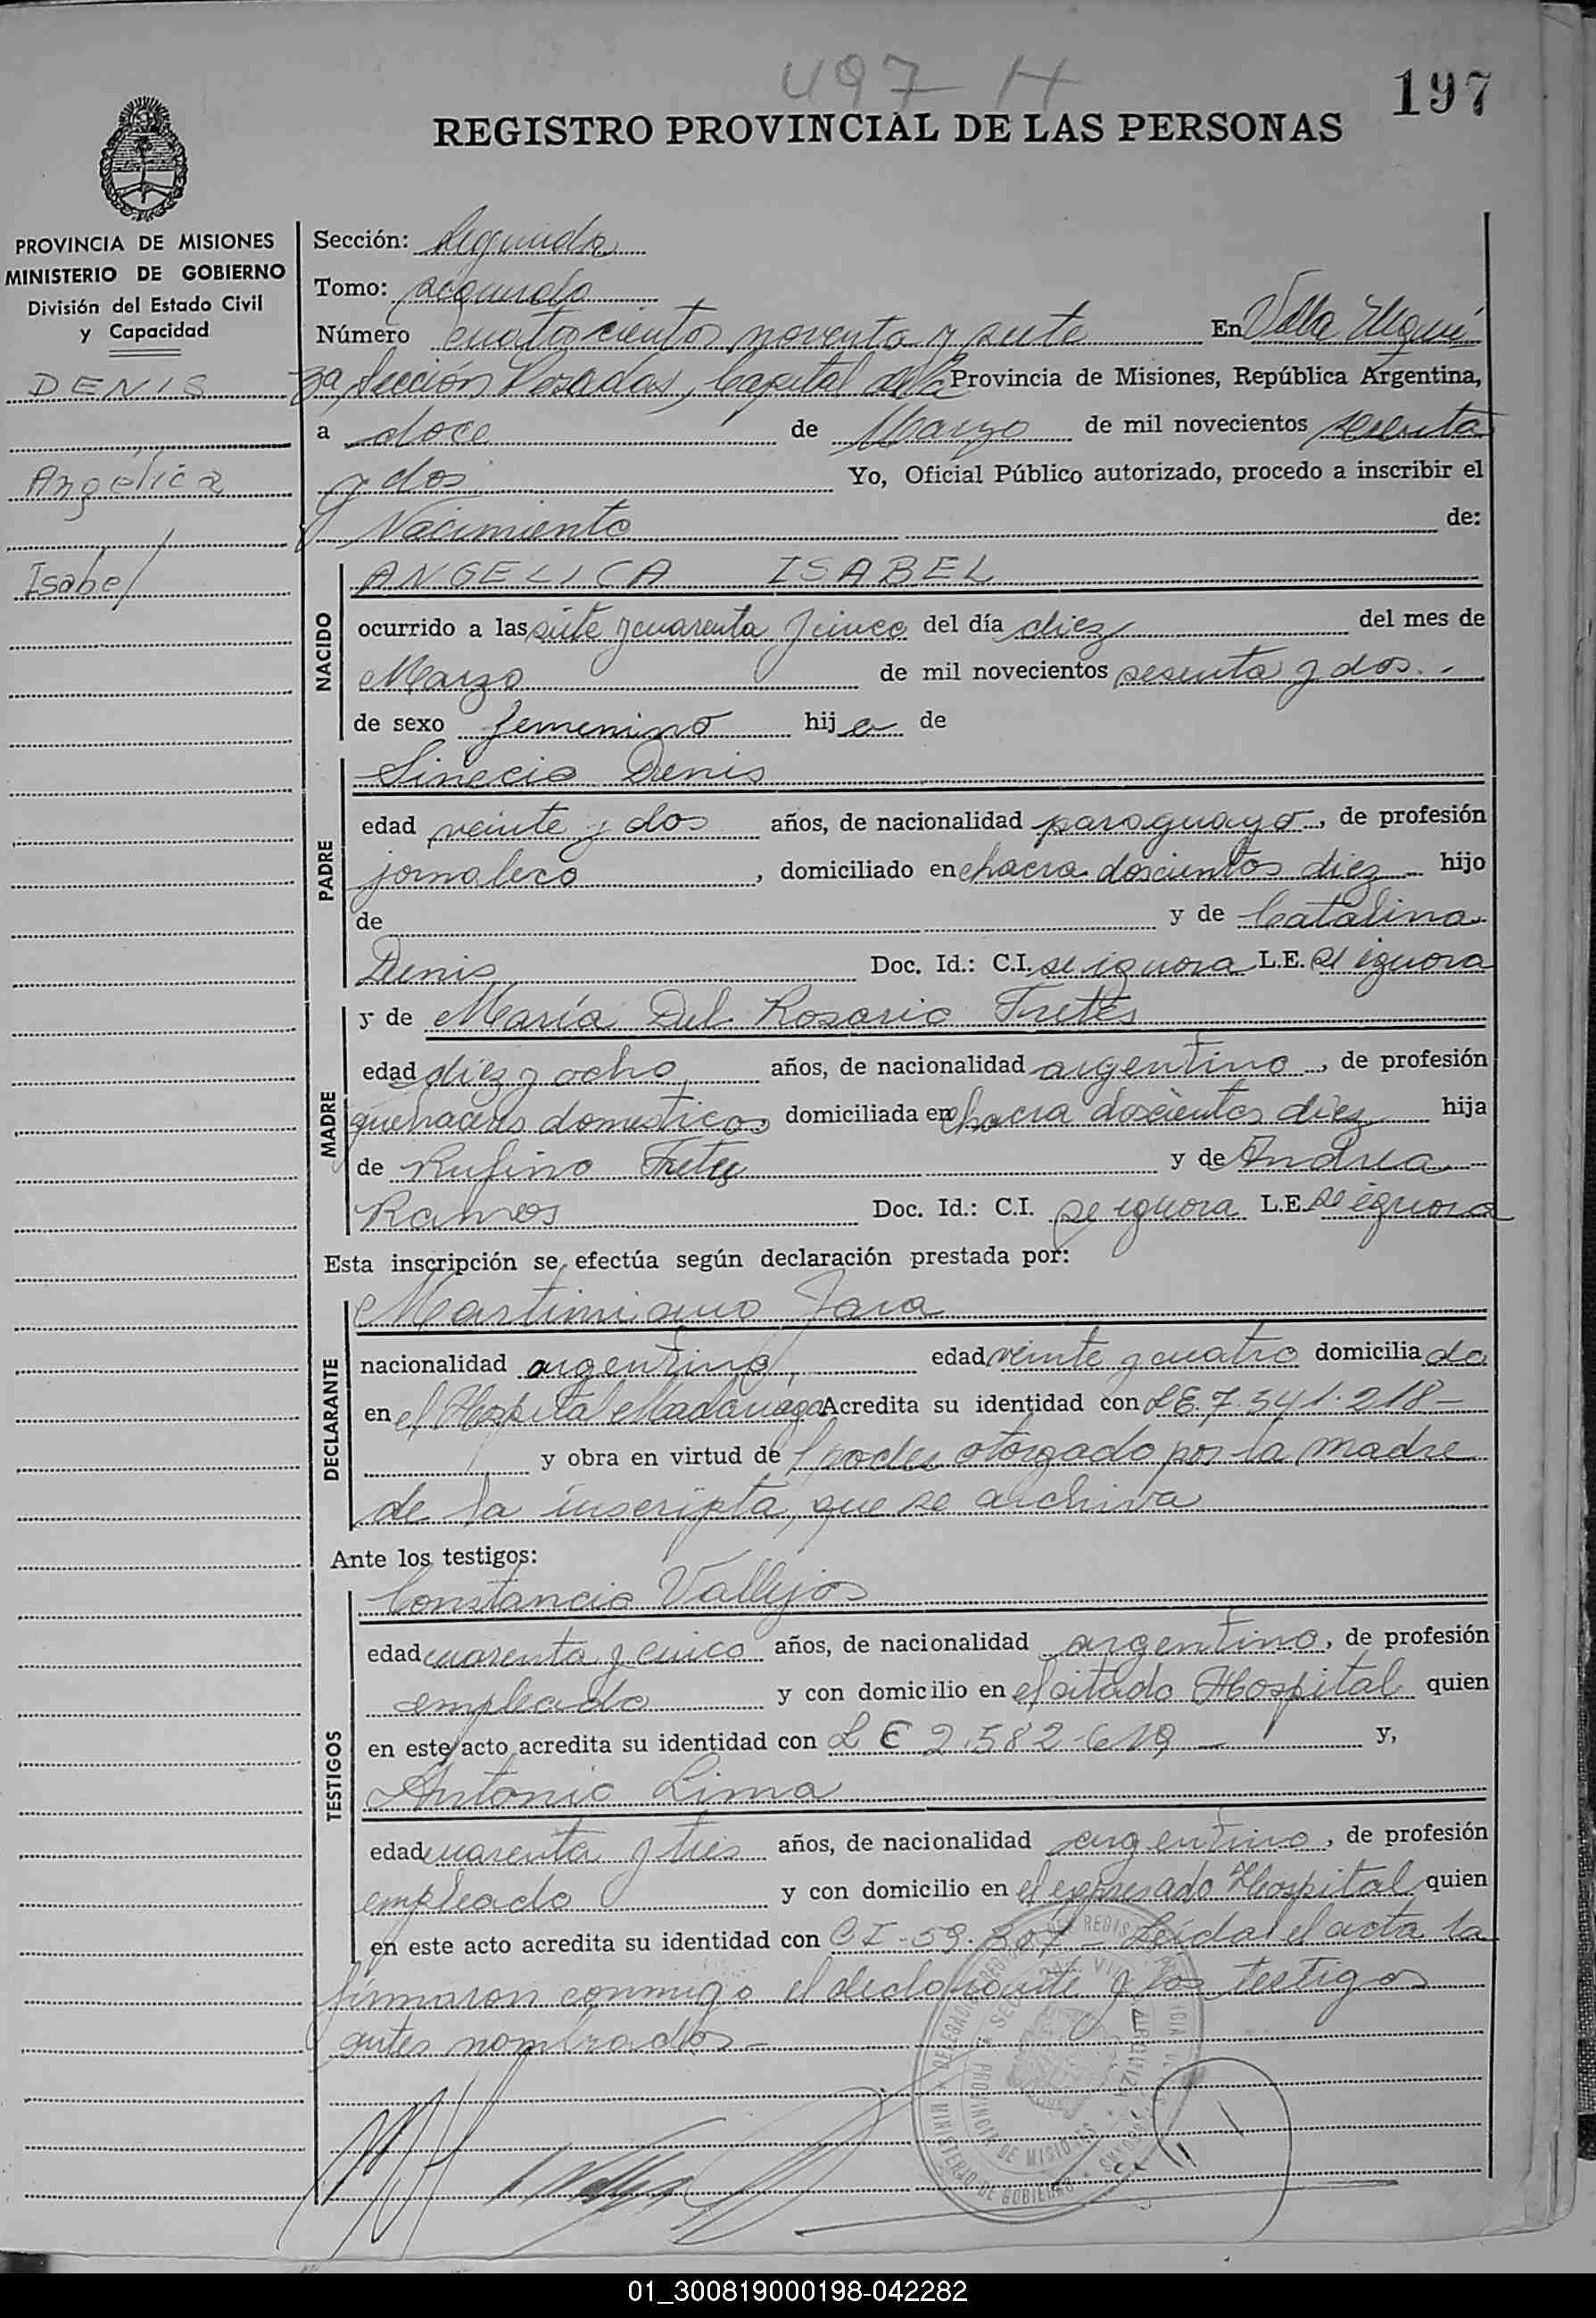 497 H
197
REGISTRO PROVINCIAL DE LAS PERSONAS
PROVINCIA DE MISIONES
MINISTERIO DE GOBIERNO
División del Estado Civil
y Capacidad
DENIS
Angélica
Isabel
Sección: Segunda
Tomo: segundo
Número cuatrocientos noventa y siete En Villa Urqui
za Sección Posadas, Capital de la Provincia de Misiones, República Argentina,
a doce de Marzo de mil novecientos sesenta
y dos Yo, Oficial Público autorizado, procedo a inscribir el
Nacimiento de:
NACIDO
ANGELICA ISABEL
ocurrido a las siete y cuarenta y cinco del día diez del mes de
Marzo de mil novecientos sesenta y dos.
de sexo femenino hija de
PADRE
Sinecio Denis
edad veinte y dos años, de nacionalidad paraguayo, de profesión
jornalero, domiciliado en chacra doscientos diez hijo
de y de Catalina
Denis Doc. Id.: C.I. se ignora L.E. se ignora
MADRE
y de María Del Rosario Fretes
edad diez y ocho años, de nacionalidad argentino, de profesión
quehaceres domesticos domiciliada en chacra doscientos diez hija
de Rufino Fretes y de Andrea
Ramos Doc. Id.: C.I. se ignora L.E. se ignora
Esta inscripción se efectúa según declaración prestada por:
DECLARANTE
Martimiano Jara
nacionalidad argentino, edad veinte y cuatro domiciliado
en el Hospital Madariaga Acredita su identidad con LE. 7.541.218-
y obra en virtud del poder otorgado por la madre
de la inscripta, que se archiva
Ante los testigos:
TESTIGOS
Constancio Vallejos
edad cuarenta y cinco años, de nacionalidad argentino, de profesión
empleado y con domicilio en el citado Hospital quien
en este acto acredita su identidad con L E 2.582.619 - y,
Antonio Lima
edad cuarenta y tres años, de nacionalidad argentino, de profesión
empleado y con domicilio en el expresado Hospital quien
en este acto acredita su identidad con CI-59.307 - Leída el acta la
firmaron conmigo el declarante y los testigos
antes nombrados-
PROVINCIA DE MISIONES
MINISTERIO DE GOBIERNO
01_300819000198-042282